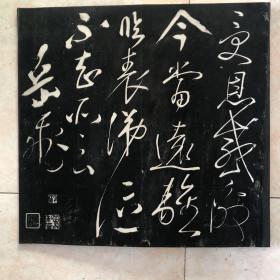 受恩感激
今当遠離
臨表涕泣
不知所云
岳飛